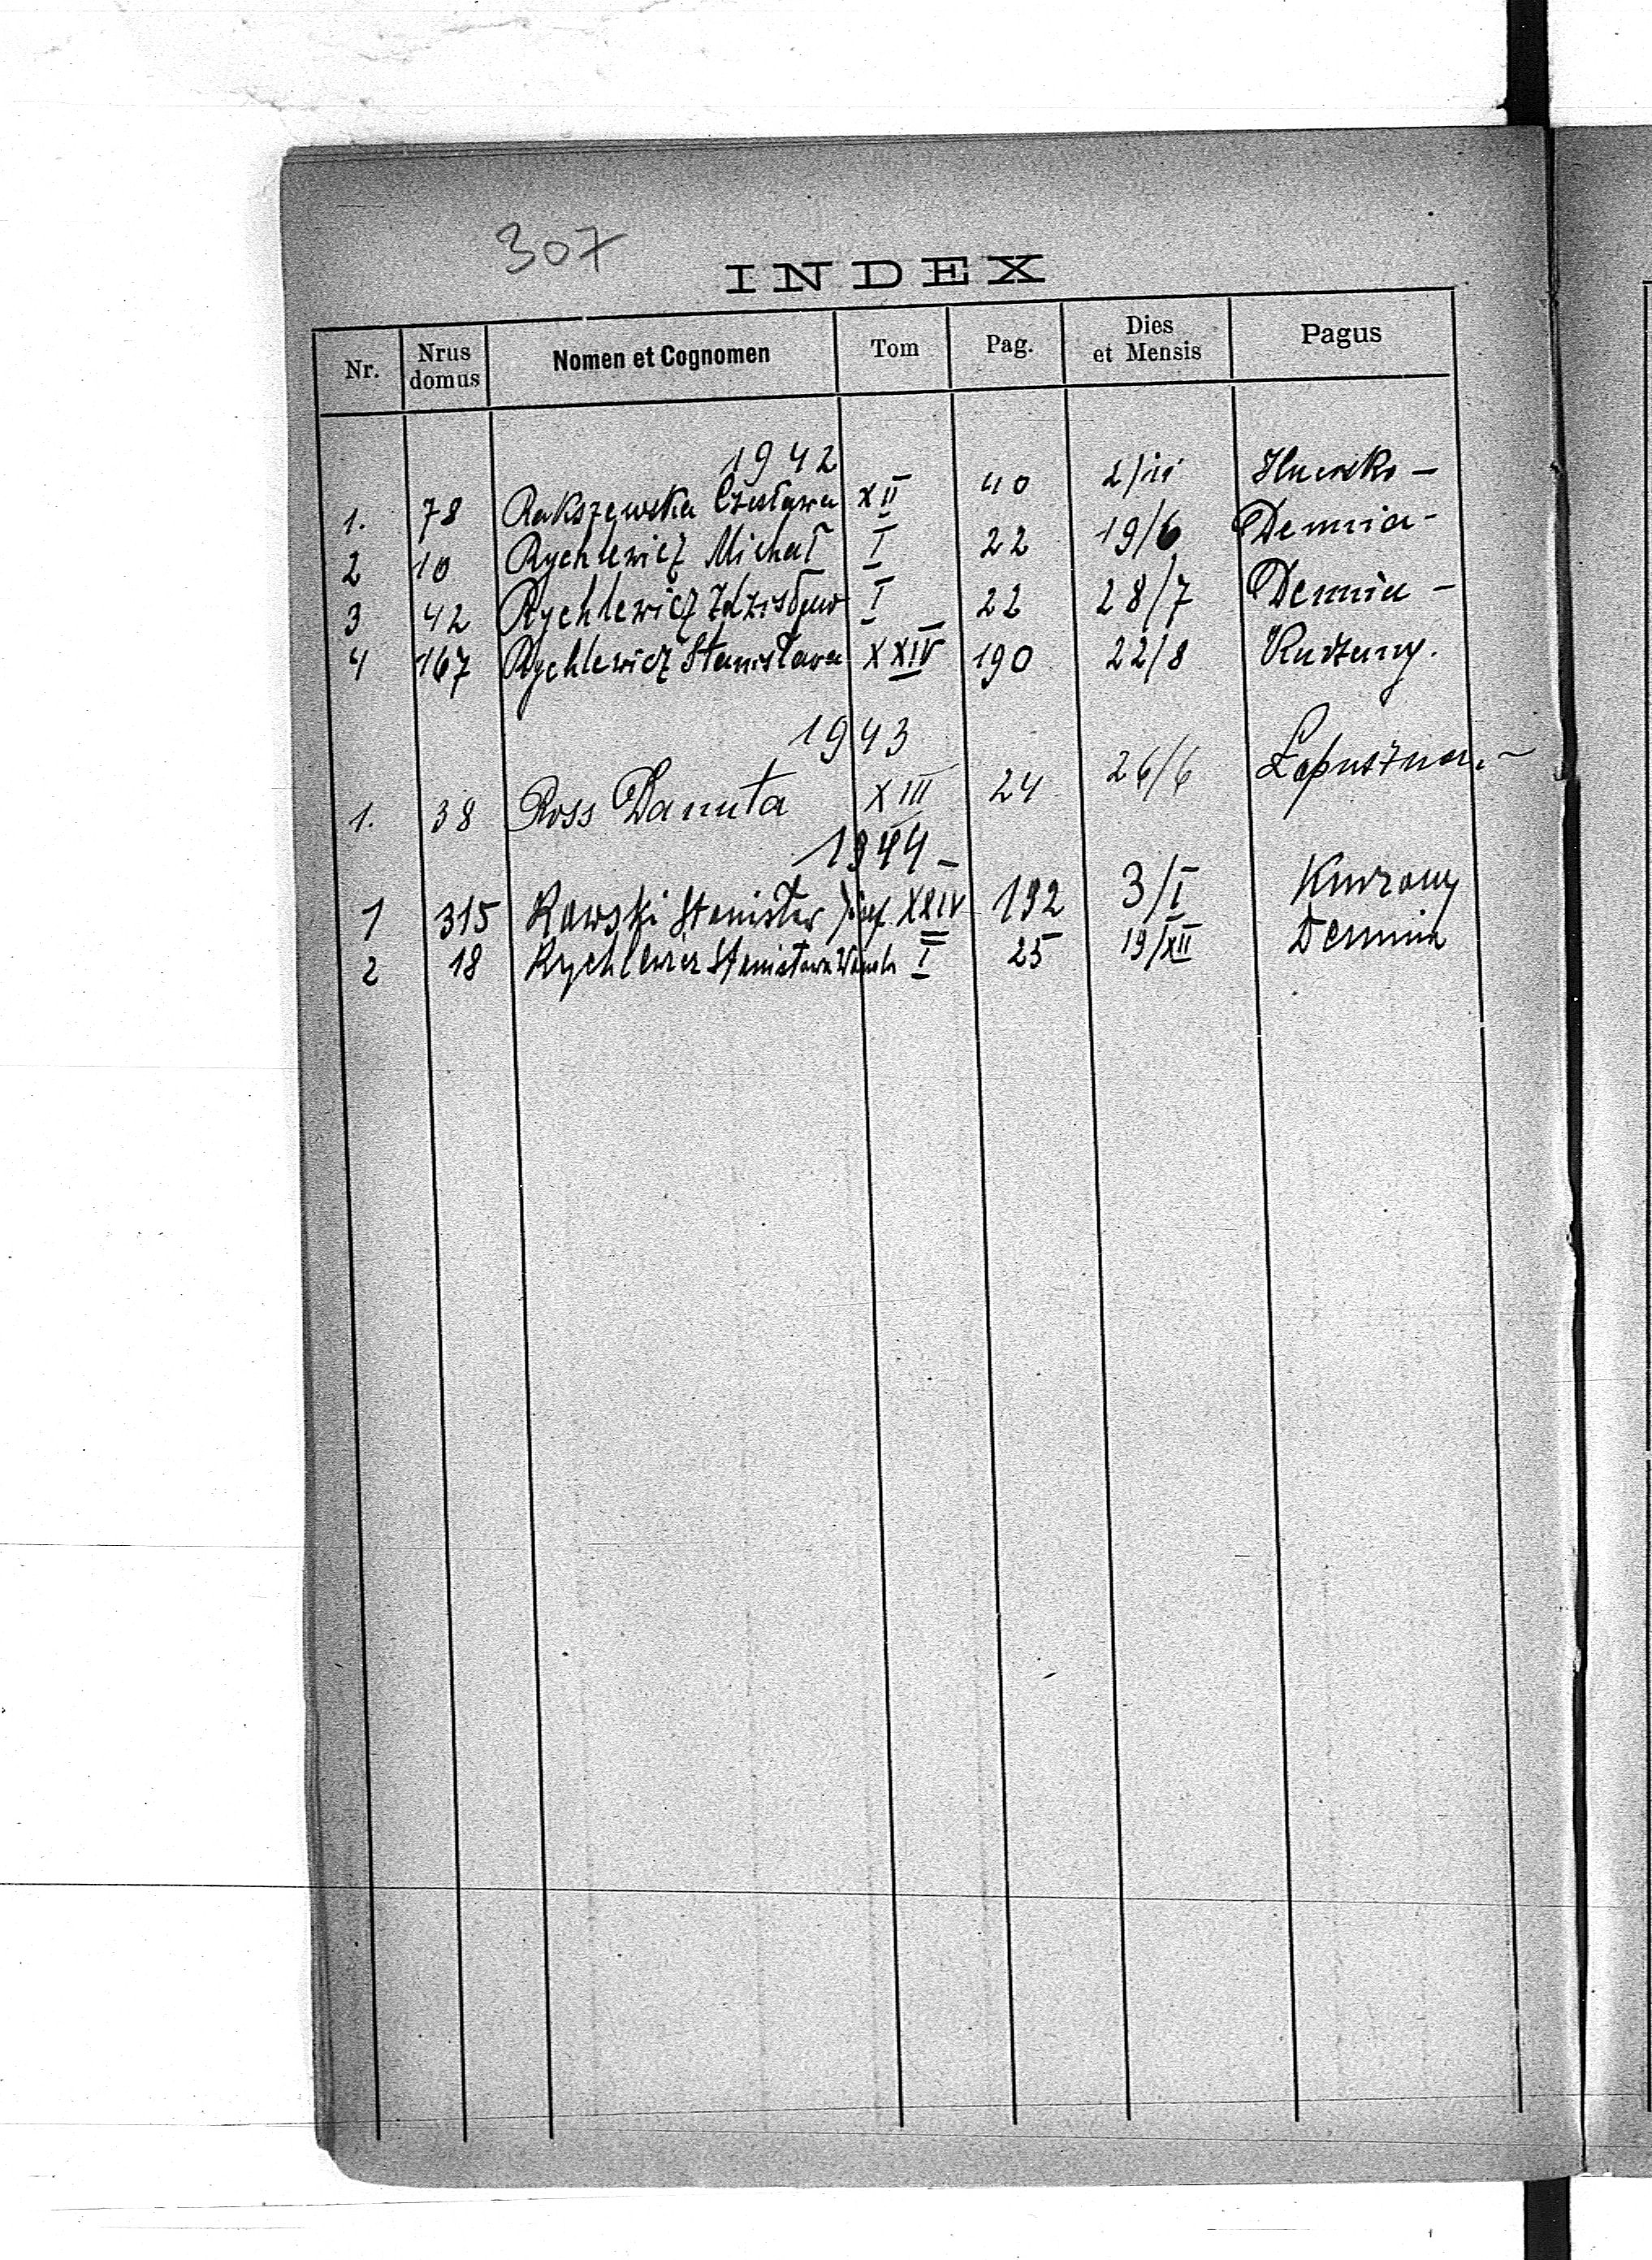 307
INDEX
Nr. Nrus domus Nomen et Cognomen Tom Pag. Dies et Mensis Pagus
1942
1. 78 Rakszewska Czesława XII 40 2/III
2 10 Rychlewicz Michał I 22 19/6 Demnia -
3 42 Rychlewicz Zdzisław I 22 28/7 Demnia -
4 167 Rychlewicz Stanisława XXIV 190 22/8 Kurzany.
1943
1. 38 Ross Danuta XIII 24 26/6 Łapuszna. -
1944 -
1 315 Rawski Stanisław Józef XXIV 192 3/I Kurzany
2 18 Rychlewicz Stanisława Wanda I 25 19/XII Demnia